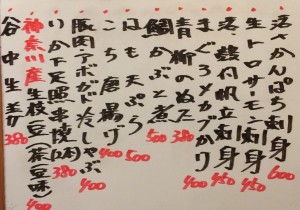 活さんぱち刺身 600
生トロサーモン刺身 450
活殻付帆立刺身 450
まぐろメカブかけ 400
青柳のぬた 380
鯛かぶと煮 500
はも天ぷら 500
ふぐ唐揚げ 400
豚肉アボガド冷しゃぶ 400
いか下足照串焼(2本) 380
神奈川産生枝豆(茶豆味) 400
谷中生姜 380